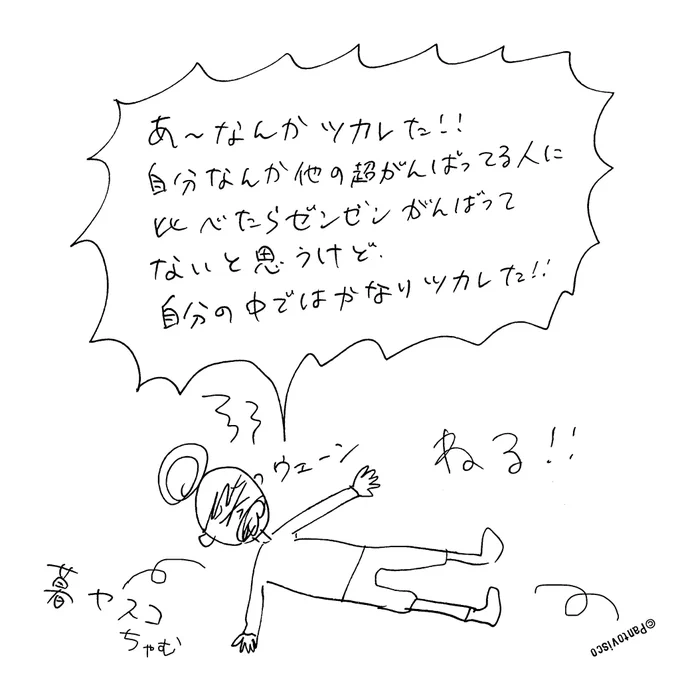 あ〜なんかツカレた!!
自分なんか他の超がんばってる人に
比べたらゼンゼンがんばって
ないと思うけど、
自分の中ではかなりツカレた!!
ウエーン
ねる!!
暮ヤスコ
ちゃむ
©Pantovisco